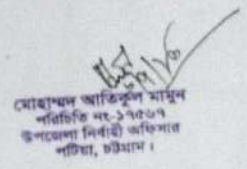 মোহাম্মদ আতিকুল মামুন
পরিচিতি নং-১৭৫৬৭
উপজেলা নির্বাহী অফিসার
পটিয়া, চট্টগ্রাম।